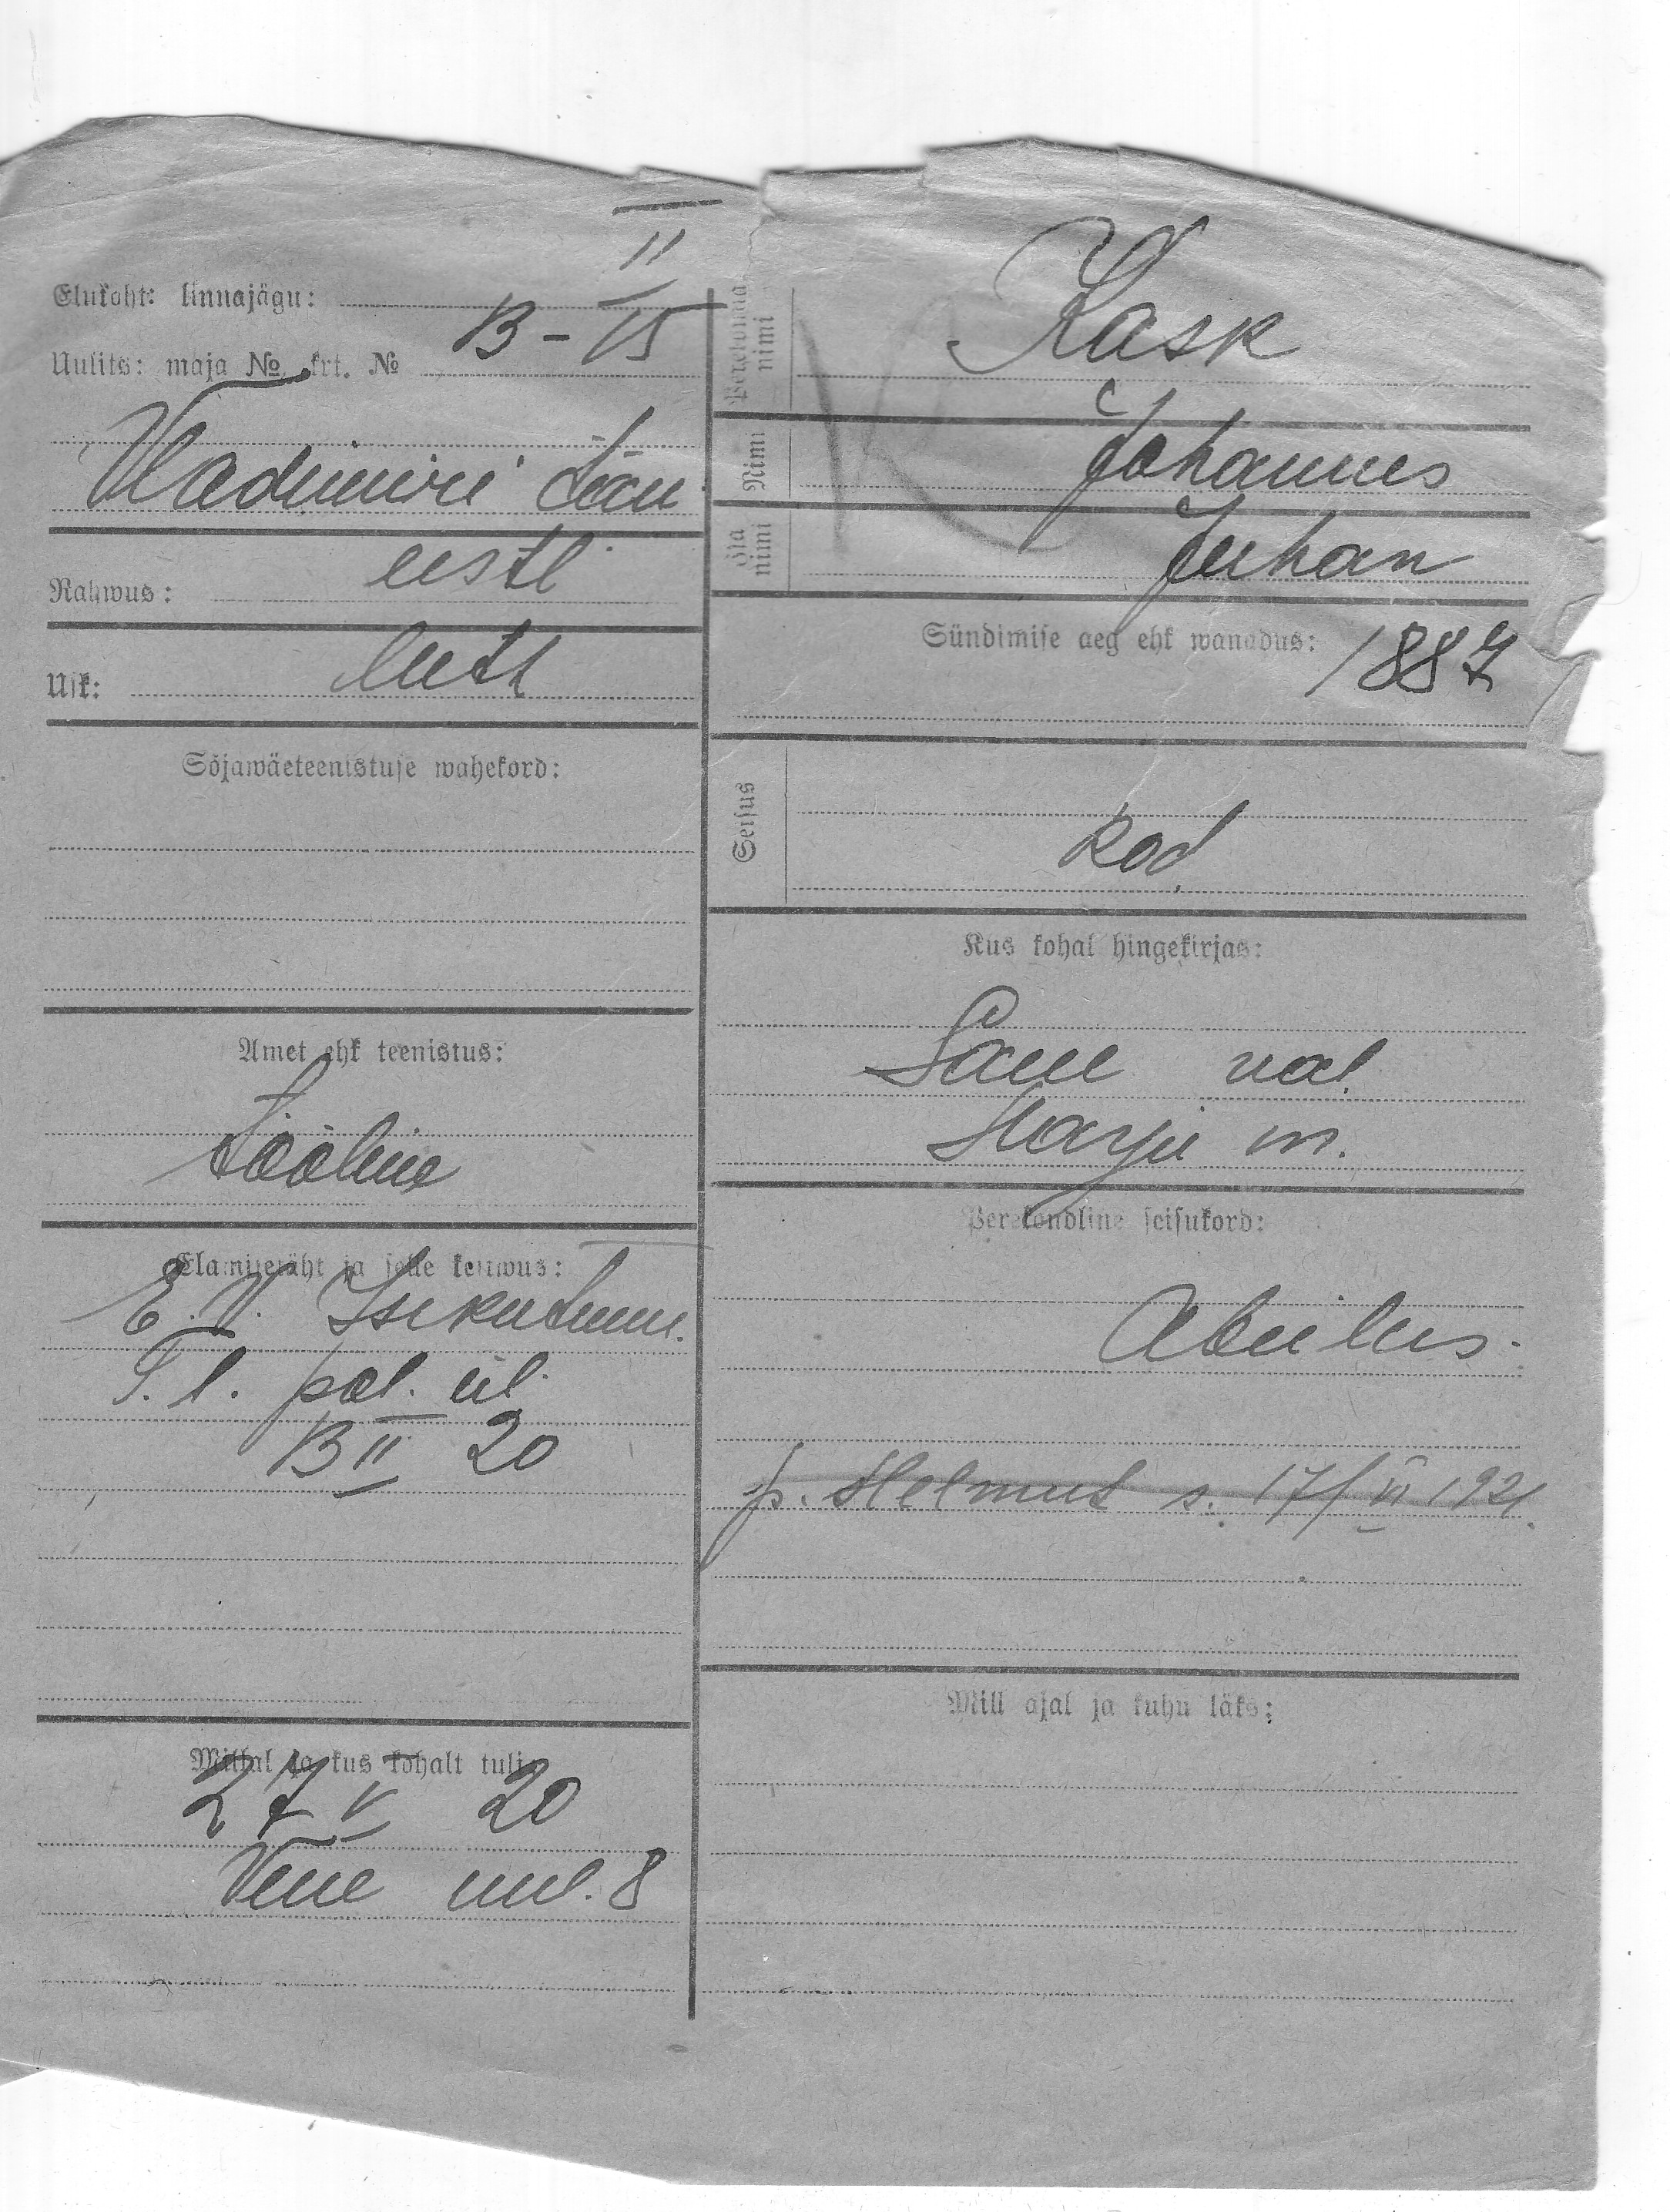 II
Elukoht: linnajägu:
Uulits: maja № krt. № 13-15
Vladimiri tän
Rahwus: eestl
Usk: luth
Sõjawäeteenistuse wahekord:
Amet ehk teenistus:
tööline
Elamisetäht ja selle kestwus:
E. V. Isikutunn.
T. l. pol. ül.
13 II 20
Millal ja kus kohalt tuli:
27 V 20
Vene uul. 8
Perekonna nimi Kask
Nimi Johannes
Isa nimi Juhan
K
Sündimise aeg ehk wanadus: 1887
Seisus kod.
Kus kohal hingekirjas:
Saue val.
Harju m.
Perekondline seisukord:
Abielus.
p. Helmut s. 17/VI 1921.
Mill ajal ja kuhu läks: